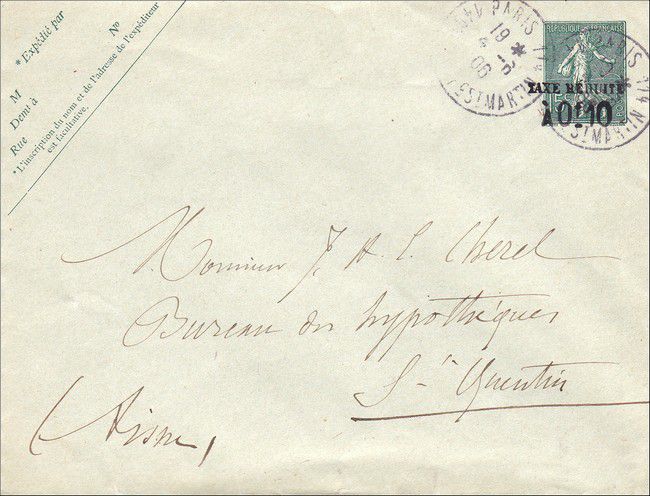 * Expédié par
Nº
M
Demt à
Rue
*L'inscription du nom et de l'adresse de l'expéditeur
est facultative.
PARIS
19
4
06
ST MARTIN
RÉPUBLIQUE FRANÇAISE
TAXE RÉDUITE
À 0f10
PARIS
ST MARTIN
Monsieur J. A. L. Cherel
Bureau des hypothèques
St Quentin
(Aisne)